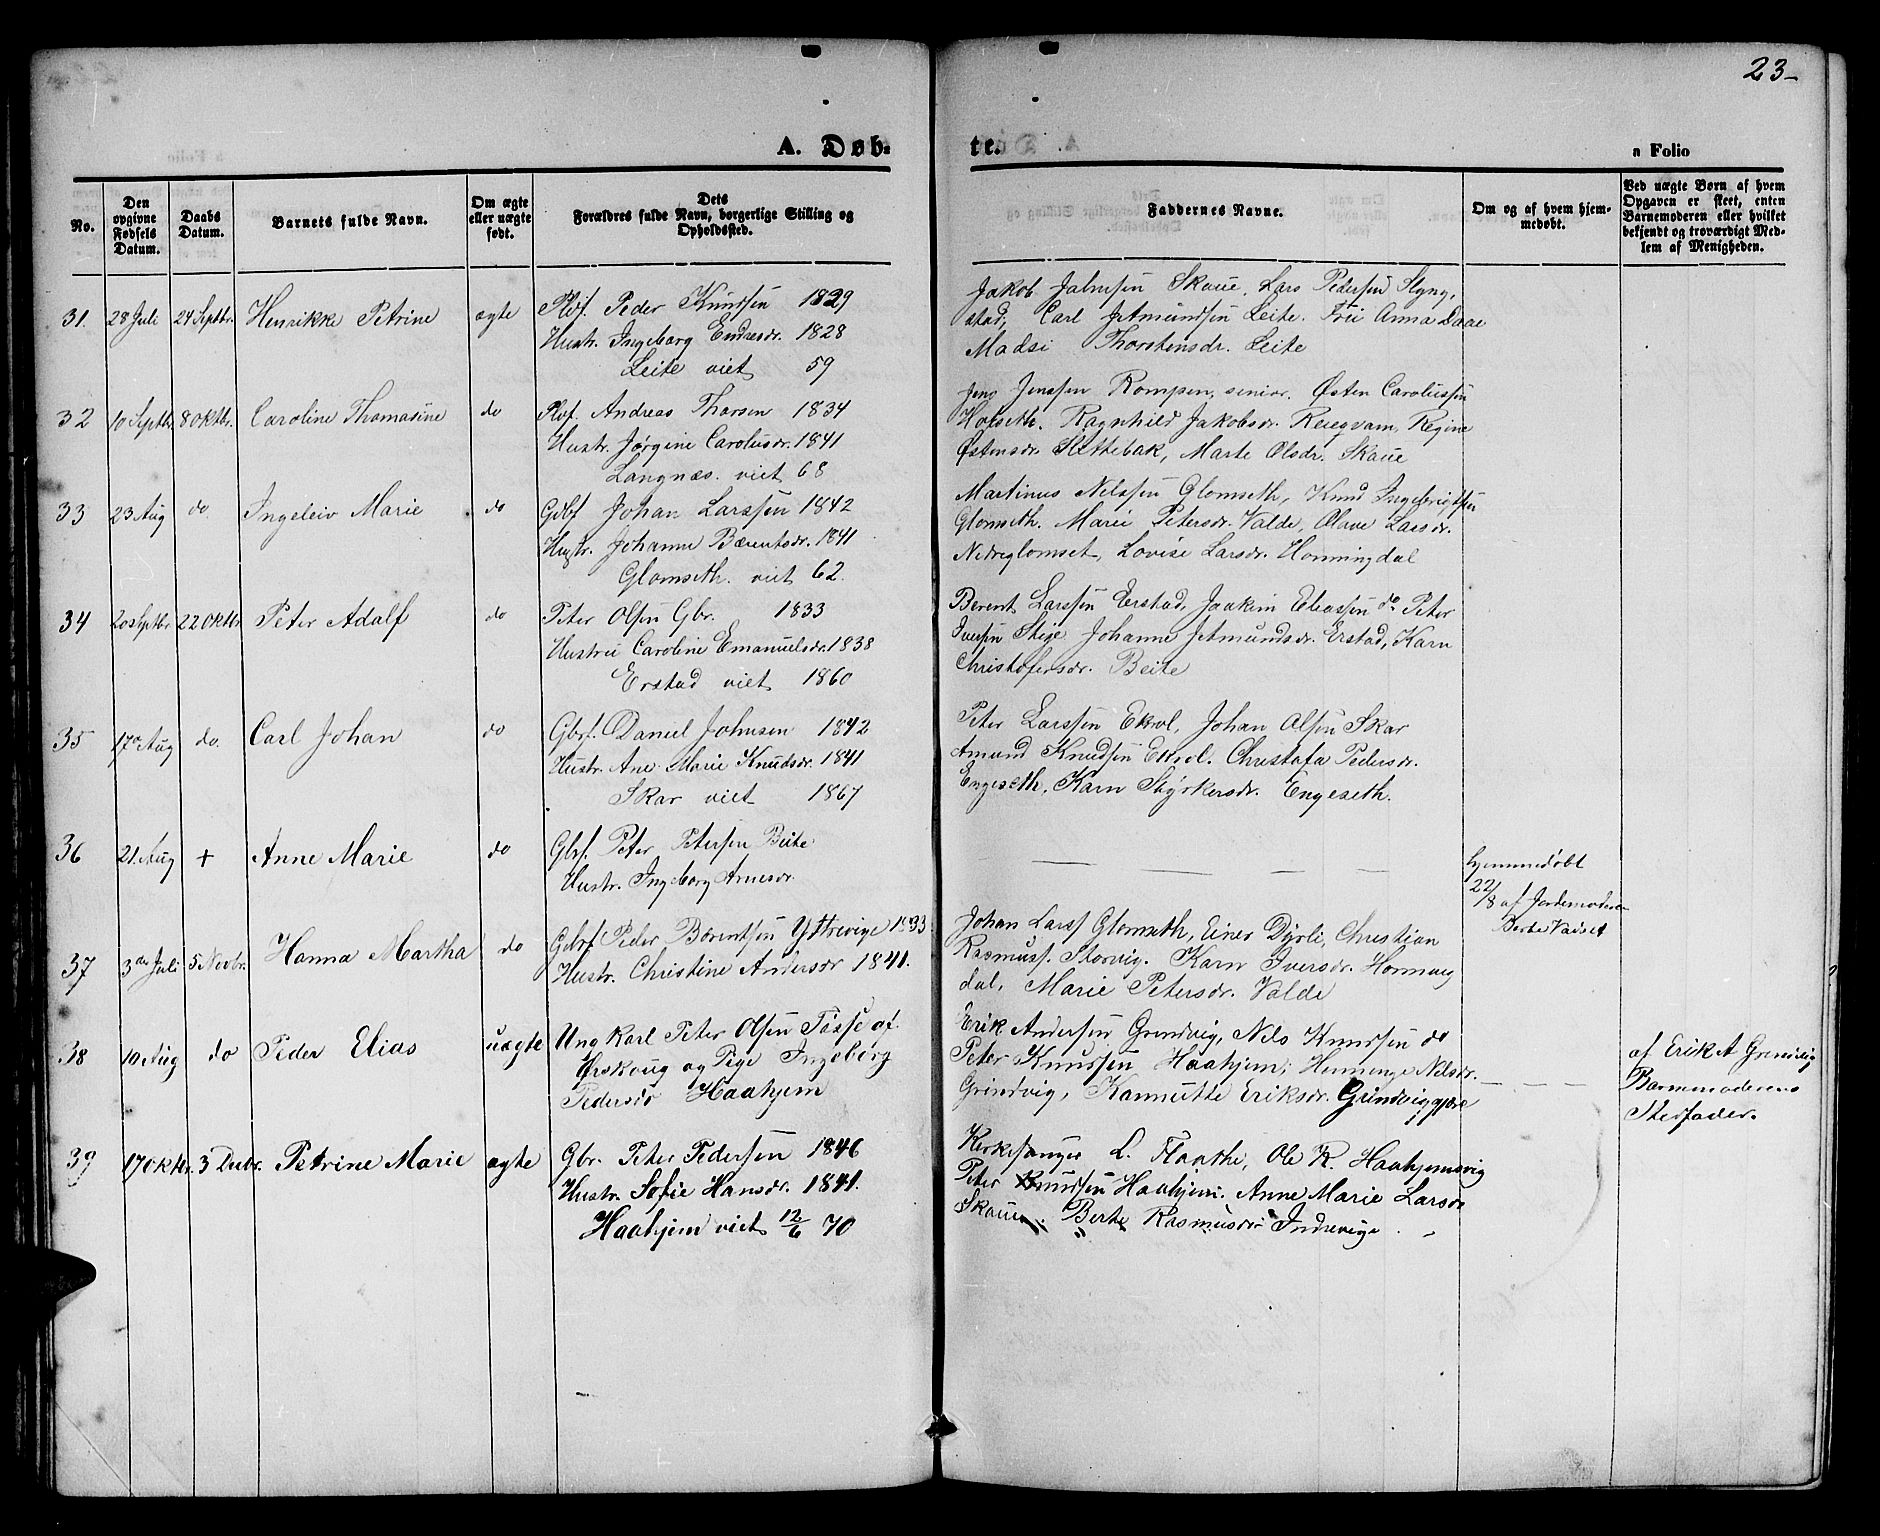 23-
A. Døb-
te.
n Folio
No.
Den opgivne Fødsels Datum.
Daabs Datum.
Barnets fulde Navn.
Om ægte eller uægte født.
Dets Forældres fulde Navn, borgerlige Stilling og Opholdssted.
Faddernes Navne.
Om og af hvem hjemmedøbt.
Ved uægte Børn af hvem Opgaven er skeet, enten Barnemoderen eller hvilket bekjendt og troværdigt Medlem af Menigheden.
31. 28 Juli 24 Septbr. Henrikke Petrine ægte
Plbf. Peder Knudsen 1829
Hustr. Ingeborg Endresdr. 1828
Leite viet 59
Jakob Jalmsen Skaue, Lars Pedersen Slyng,
stad, Carl Jetmundsen Leite. Fru Anna Daae
Madsi Thorstensdr. Leite
32 10 Septbr. 8 Oktbr. Caroline Thomasine do
Plbf. Andreas Thorsen 1834
Hustr. Jørgine Carolusdr. 1841
Langnæs. viet 68
Jens Jenssen Rompen, senior. Østen Carolussen
Hofseth. Ragnhild Jakobsdr. Regine
Østensdr. Slettebak, Marte Olsdr. Skaue
33 23 Aug do. Ingeleiv Marie do
Gdbf Johan Larssen 1842
Hustr. Johanne Bærentsdr. 1841
Glomseth. viet 62.
Martinus Nilssen Glomseth, Knud Ingebrigtsen
Glomseth. Marie Petersdr. Valde, Olave Larsdr.
Nedreglomset, Lovise Larsdr. Honningdal
34 20 Septbr 22 Oktbr Peter Adolf do
Peter Olsen Gbr. 1833
Hustru Caroline Emanuelsdr. 1838
Erstad viet 1860
Berent Larssen Erstad, Joakim Eliassen do Peter
Iversen Stige Johanne Jetmundsdr. Erstad, Karn
Christofersdr. Beite
35 17de Aug do. Carl Johan do
Gbrf. Daniel Johnsen 1842
Hustr. Ane Marie Knudsdr. 1841
Skar viet 1867
Peter Larssen Ekrol, Johan Olsen Skar
Amund Knudsen Ekrol. Christofa Pedersdr.
Engeseth, Karn Styrkersdr. Engeseth.
36 21. Aug + Anne Marie do
Gbrf. Peter Petersen Beite
Hustr. Ingeborg Arnesdr.
hjemmedøbt
22/8 af Jordemoderen
Berte Vadset
37 3de Juli 5 Novbr. Hanna Martha do
Gbrf Peder Bærentsen Yttrevige 1833.
Hustr. Christine Andersdr 1841.
Johan Larss Glomseth, Einer Dyrli, Christian
Rasmuss. Storvig. Karn Iversdr. Honning
dal, Marie Petersdr. Valde
38 10 Aug do Peder Elias uægte
Ungkarl Peter Olsen Tøsse af
Ørskoug og Pige Ingeborg
Pedersdr Haahjem
Erik Andersen Grindvig, Nils Knudsen do
Peter Knudsen Haahjem, Hennenge Nilsdr.
Grindvig, Kannutte Eriksdr. Grindviggjære
af Erik A Grindvig
Barnemoderens
Stedfader.
39 17 Oktbr. 3 Decbr. Petrine Marie ægte
Gbr. Peter Pedersen 1846
Hustr. Sofie Hansdr. 1841.
Haahjem viet 12/6 70
Kirkesanger L. Flaathe, Ole K. Haahjemsvig
Peter Knudsen Haahjem. Anne Marie Larsdr
Skaue. Berte Rasmusdr Indrevige